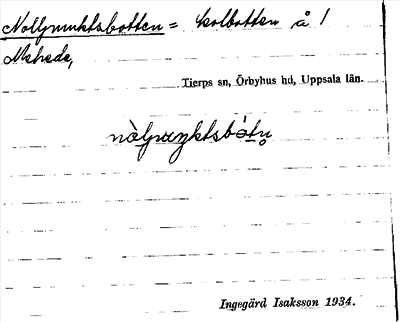 Nollpunktsbotten = kolbotten å 1
Mehede,
Tierps sn, Örbyhus hd, Uppsala län.
Ingegärd Isaksson 1934.